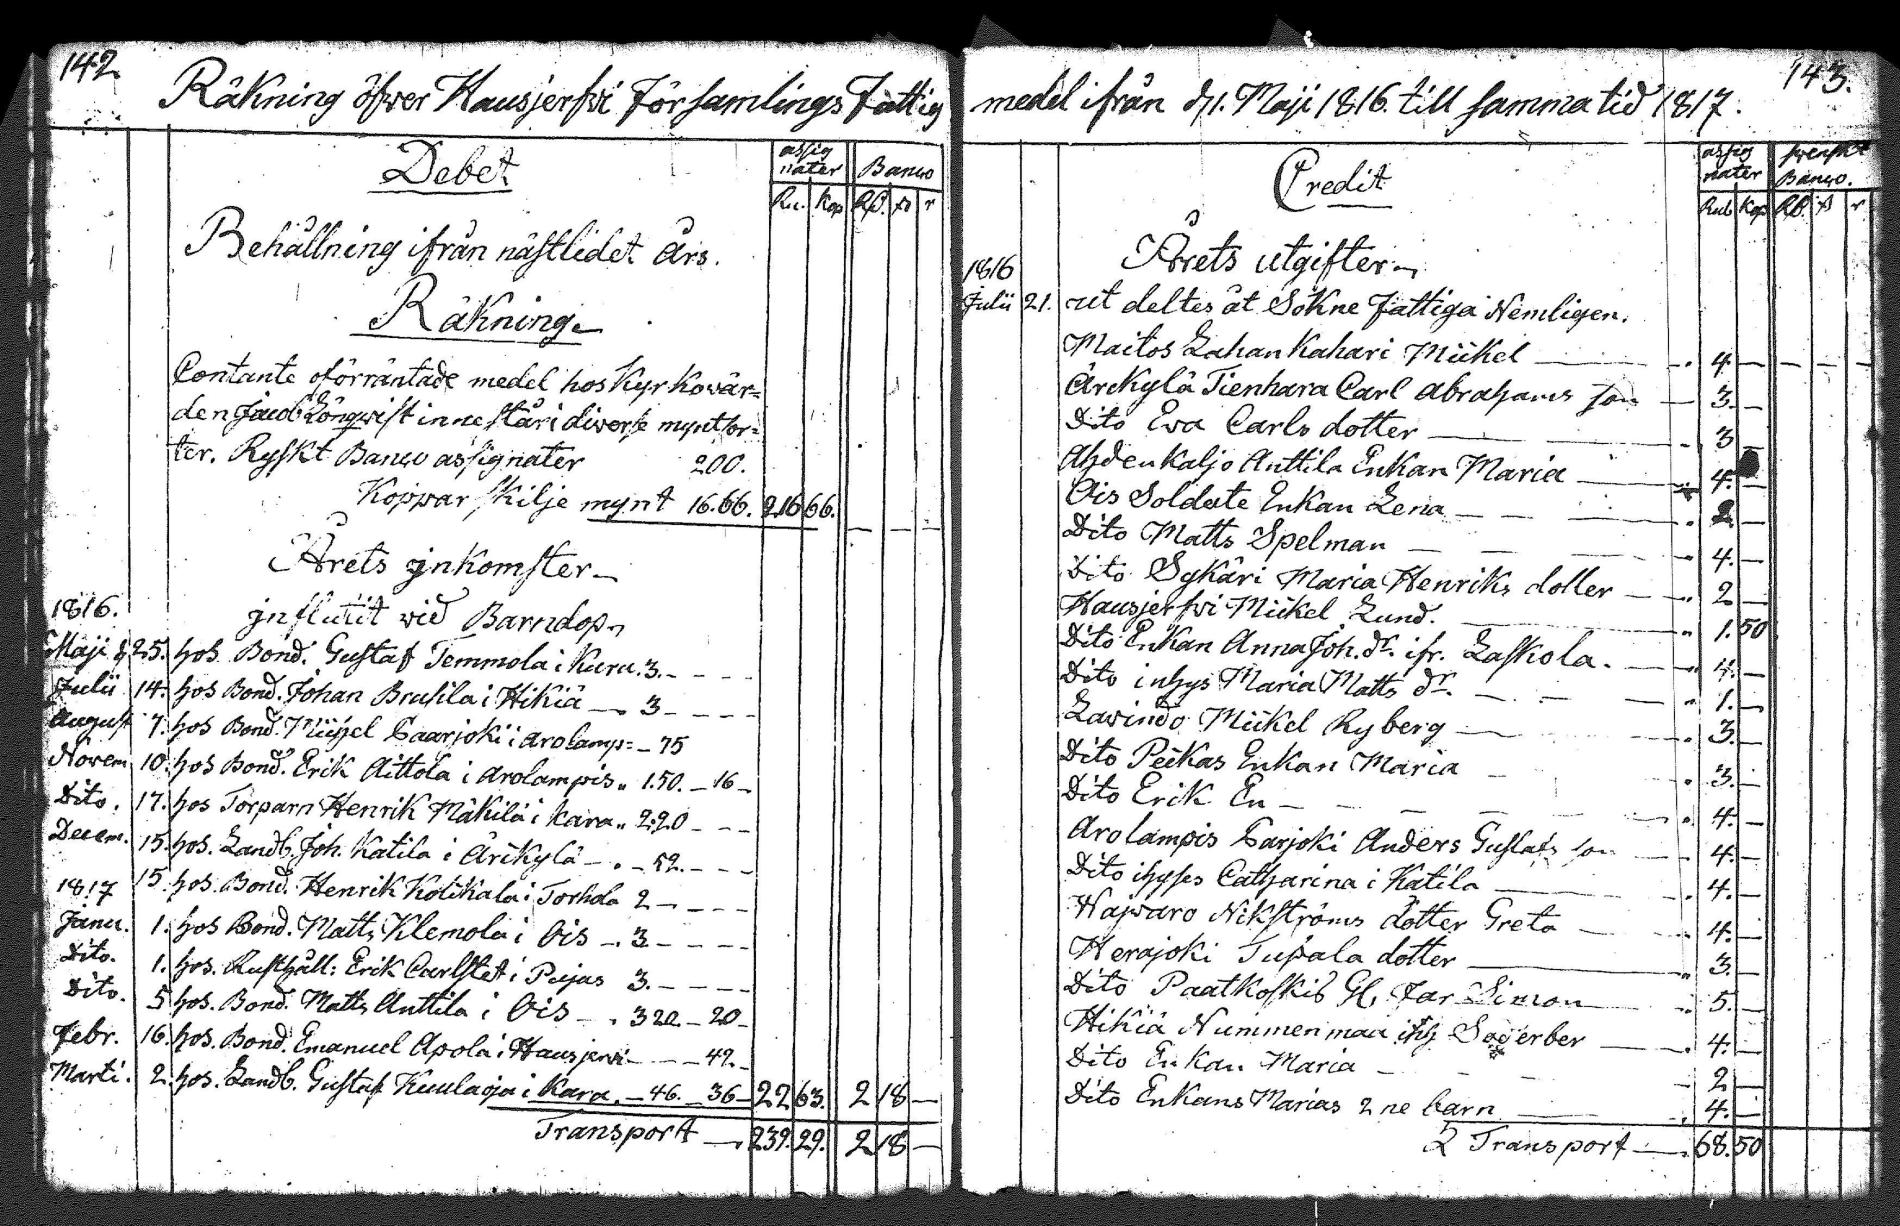 142.
Räkning öfwer Hausjerfwi Församlings Fattig
Debet
assig
nater
Banco
Ru. Kop Rd. ß r
Behållning ifrån nästlidet Års.
Räkning
Contante oförräntade medel hos Kyrkowär=
den Jacob Löngwist innestår i diverse myntsor=
ter. Ryskt Banco assignater 200.
Koppar skilje mynt 16.66. 216 66.
Årets inkomster
1816.
influtit wid Barndop
Maji 25. hos Bond. Gustaf Temmola i Kuru. 3. - - - -
Julii 14. hos Bond. Johan Brusila i Hikiä — 3 - - - -
August 7. hos Bond. Mickel Paarjoki i Arolamp= - 75
Novem 10. hos Bond. Erik Aittola i Arolampis „ 1.50. - 16 -
Dito. 17. hos Torparn Henrik Mäkilä i Kara „ 2.20 - - -
Decem. 15. hos. Landb. Joh. Katila i Ärikylä - . - 52. - - -
15. hos. Bond. Henrik Kolikala i Torhola 2 - - - -
1817
Janu. 1. hos Bond. Matts Klemola i Ois - . 3 - - - -
Dito. 1. hos. Rusthåll: Erik Carlstet i Pujas 3. - - - -
Dito. 5 hos. Bond. Matts Anttila i Ois - . 3 20. - 20 -
Febr. 16. hos. Bond. Emanuel Apola i Hausjerwi - - - 42. -
Marti. 2. hos. Landb. Gustaf Kuulaoja i Kara. - 46. - 36 - 22 63. 2 18 —
Transport — 239. 29. 2 18 —
143.
medel ifrån d. 1. Maji 1816. till samma tid 1817.
Credit
assig
nater
swenskt
Banco.
Rub Kop Rd. ß r
Årets utgifter
1816
Julii 21. ut deltes åt Sokne Fattiga Nemligen.
Maitos Lahan Kahari Mickel — 4 —
Ärikylä Tienhara Carl Abrahams son — 3. —
Dito Ewa Carls dotter — 3 —
Ahdenkaljo Anttila Enkan Maria — 4. —
Ois Soldate Enkan Lena — 2 —
Dito Matts Spelman — 4. —
Dito Sykäri Maria Henriks dotter — 2 —
Hausjerfwi Mickel Lund. „ 1. 50
Dito Enkan Anna Joh. dr. ifr. Laskola. — 4. —
Dito inhys Maria Matts dr. — 1. —
Lawindo Mickel Ryberg — 3. —
Dito Peckas Enkan Maria — 3. —
Dito Erik En — 4. —
Arolampis Parjoki Anders Gustafs son — 4. —
Dito ihyses Catharina i Katila — 4. —
Nikströms dotter Greta — 4. —
Herajoki Tupala dotter — 3. —
Dito Paatkoskis Gl. Far Simon — 5. —
Hikiä Nummenmaa ihy. — 4. —
Dito Enkan Maria — 2 —
Dito Enkans Marias 2 ne barn — 4. —
Transport — 68. 50